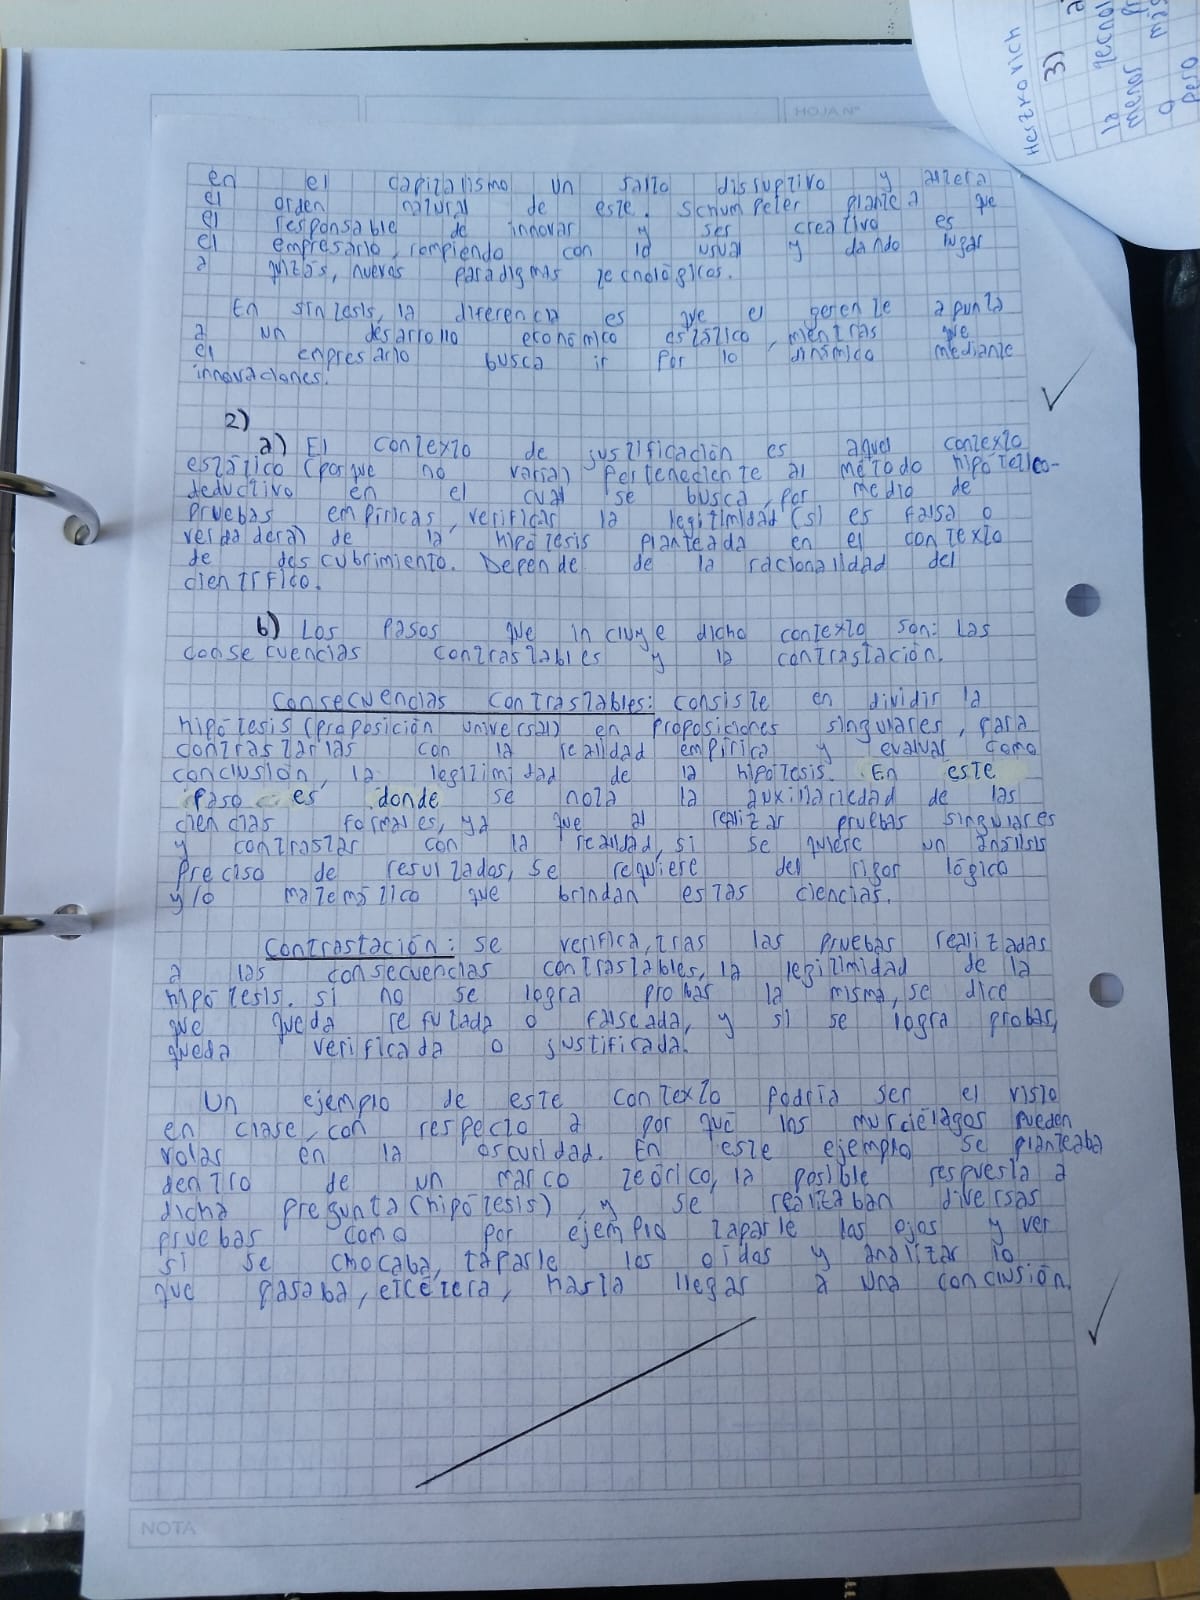 HOJA Nº
Heszkovich
3)
en el capitalismo un salto disruptivo y altera
el orden natural de este. Schumpeter plantea que
el responsable de innovar y ser creativo es
el empresario, rompiendo con lo usual y dando lugar
a quizás, nuevos paradigmas tecnológicos.
En síntesis, la diferencia es que el gerente apunta
a un desarrollo económico estático, mientras que
el enpresario busca ir por lo dinámico mediante
innovaciones.
2)
a) El contexto de justificación es aquel contexto
estático (porque no varia) perteneciente al método hipotético-
deductivo en el cual se busca, por medio de
pruebas empíricas, verificar la legitimidad (si es falsa o
verdadera) de la hipótesis planteada en el contexto
de descubrimiento. Depende de la racionalidad del
científico.
b) Los pasos que incluye dicho contexto son: las
consecuencias contrastables y la contrastación.
Consecuencias contrastables: consiste en dividir la
hipótesis (proposición universal) en proposiciones singulares, para
contrastarlas con la realidad empírica y evaluar como
conclusión, la legitimidad de la hipótesis. En este
paso es donde se nota la auxiliariedad de las
ciencias formales, ya que al realizar pruebas singulares
y contrastar con la realidad, si se quiere un análisis
preciso de resultados, se requiere del rigor lógico
y/o matemático que brindan estas ciencias.
Contrastación: se verifica, tras las pruebas realizadas
a las consecuencias contrastables, la legitimidad de la
hipótesis. si no se logra probar la misma, se dice
que queda refutada o falseada, y si se logra probar,
queda verificada o justificada.
Un ejemplo de este contexto podría ser el visto
en clase, con respecto a por qué los murciélagos pueden
volar en la oscuridad. En este ejemplo se planteaba
dentro de un marco teórico, la posible respuesta a
dicha pregunta (hipótesis), y se realizaban diversas
pruebas como por ejemplo taparle los ojos y ver
si se chocaba, taparle los oídos y analizar lo
que pasaba, etcétera, hasta llegar a una conclusión.
NOTA